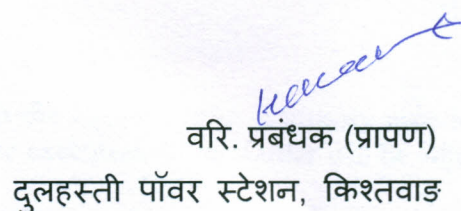 वरि. प्रबंधक (प्रापण)
दुलहस्ती पॉवर स्टेशन, किश्तवाङ